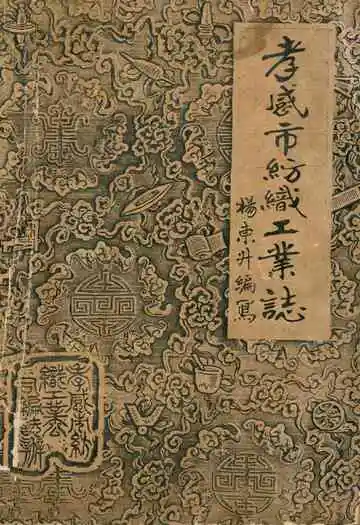 孝感市紡織工業誌
楊東升編寫
孝感市紡
織工業